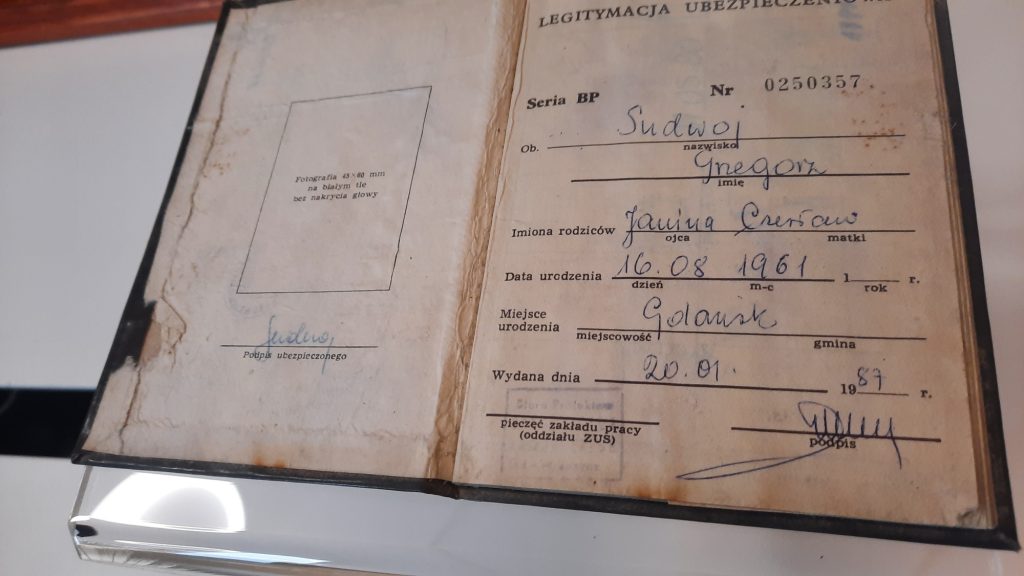 Fotografia 45×60 mm
na białym tle
bez nakrycia głowy
Sudwoj
Podpis ubezpieczonego
LEGITYMACJA UBEZPIECZENIOWA
Seria BP Nr 0250357
Sudwoj
Ob. nazwisko
Grzegorz
imię
Imiona rodziców Janina Czesław
ojca matki
Data urodzenia 16.08 1961 1 r.
dzień m-c rok
Miejsce urodzenia Gdańsk
miejscowość gmina
Wydana dnia 20.01. 1987 r.
pieczęć zakładu pracy
(oddziału ZUS)
podpis